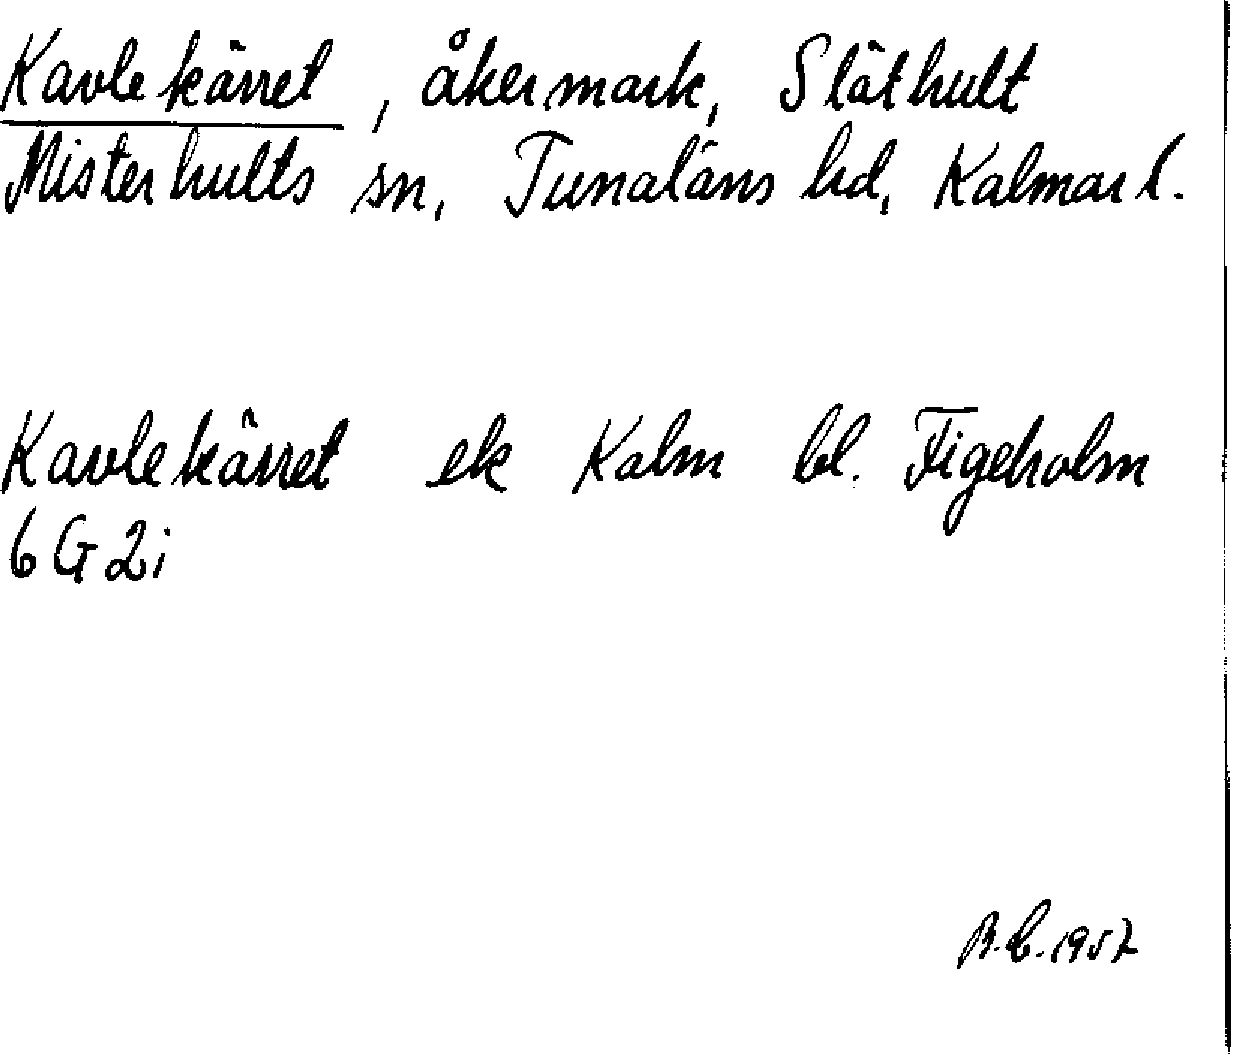 Kavlekärret, åkermark, Släthult
Misterhults sn, Tunaläns hd, Kalmar l.
Kavlekärret ek Kalm bl. Figeholm
6G2i
B.C. 1957